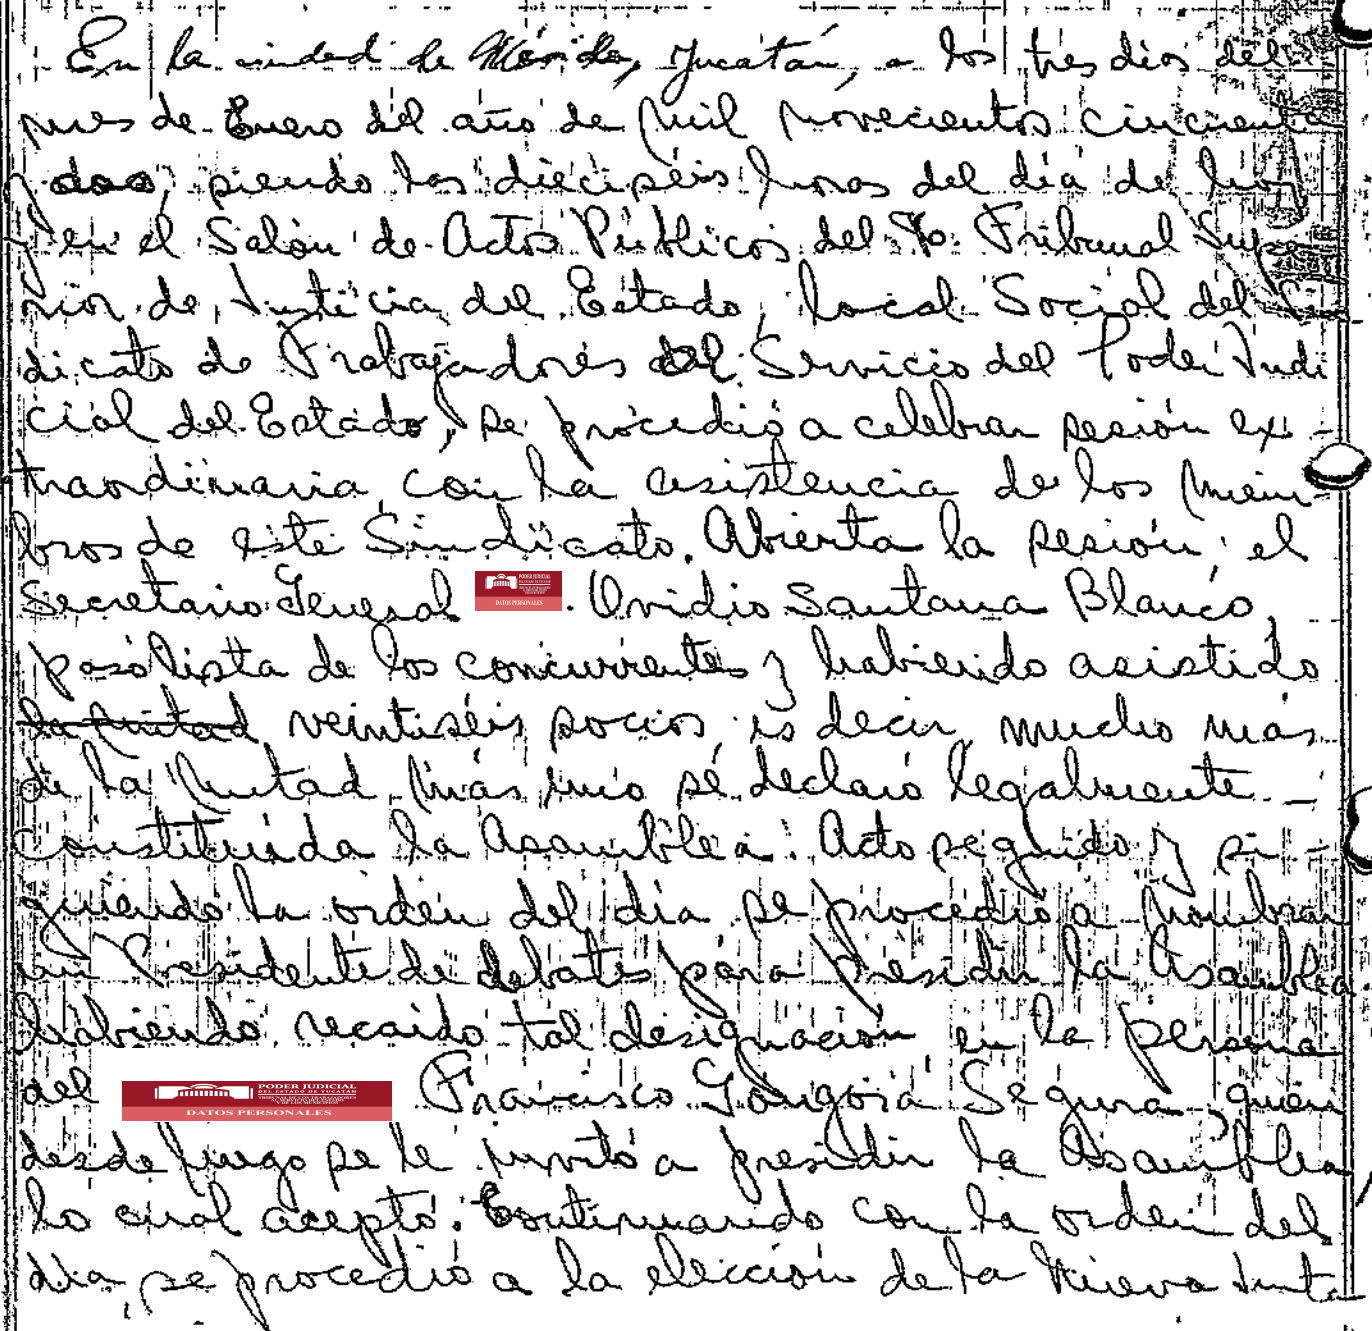 En la ciudad de Mérida, Yucatán, a los tres días del
mes de Enero del año de mil novecientos cincuenta
y dos, siendo las dieciséis horas del día de hoy
y en el Salón de Actos Públicos del Tribunal Supe
rior de Justicia del Estado, local Social del
dicato de Trabajadores del Servicio del Poder Judi
cial del Estado, se procedió a celebrar sesión ex-
traordinaria, con la asistencia de los miem-
bros de este Sindicato. Abierta la sesión el
Secretario General
PODER JUDICIAL
DATOS PERSONALES
. Ovidio Santana Blanco,
pasó lista de los concurrentes y habiendo asistido
la mitad veintiséis socios, es decir, mucho más
de la mitad más uno se declaró legalmente
constituida la Asamblea. Acto seguido y si-
guiendo la orden del día se procedió a nombrar
un Presidente de debates para presidir la Asamblea.
habiendo recaído tal designación en la persona
del
PODER JUDICIAL
DEL ESTADO DE YUCATÁN
DATOS PERSONALES
Francisco Góngora Segura, quien
desde luego se le invitó a presidir la Asamblea
lo cual aceptó. Continuando con la orden del
día, se procedió a la elección de la Nueva Junta